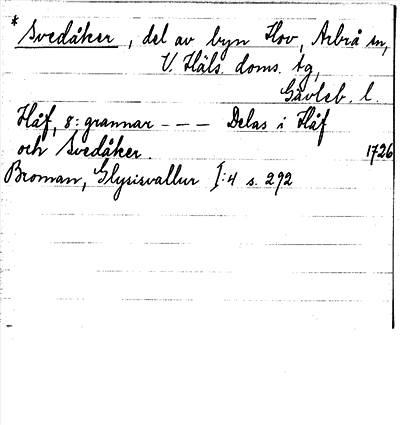 * Svedåker, del av byn Hov, Arbrå sn,
V. Häls. doms. tg,
Gävleb. l.
Håf, 8: grannar - - - Delas i Håf
och Svedåker. 1726
Broman, Glysisvallur I:4 s. 292